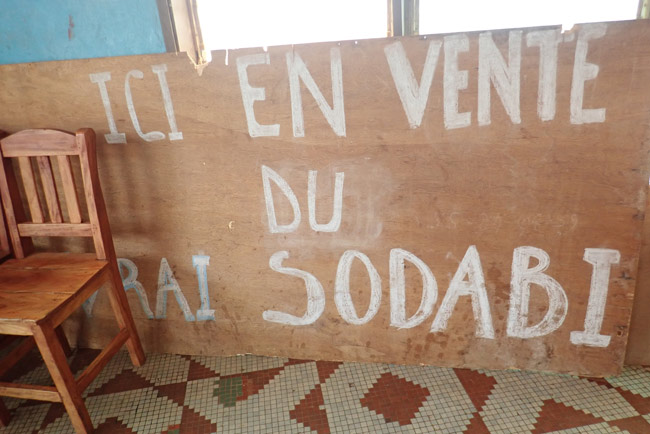 ICI EN VENTE
DU
VRAI SODABI